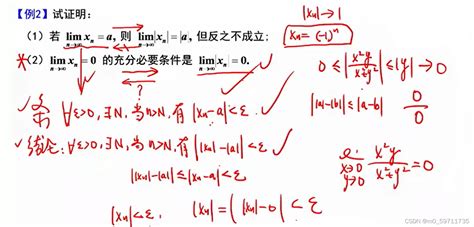 【例2】试证明：
(1) 若 lim_{n→∞} x_n = a, 则 lim_{n→∞} |x_n| = |a|, 但反之不成立；
(2) lim_{n→∞} x_n = 0 的充分必要条件是 lim_{n→∞} |x_n| = 0.
|x_n| → 1
x_n = (-1)^n
?
0 ≤ |x²y/(x²+y²)| ≤ |y| → 0
||a|-|b|| ≤ |a-b|
0/0
∀ε>0, ∃N, 当n>N, 有 |x_n-a|<ε.
结论: ∀ε>0, ∃N, 当n>N, 有 ||x_n|-|a||<ε
x→0
y→0
x²y/(x²+y²) = 0
||x_n|-|a|| ≤ |x_n-a|<ε
|x_n|<ε
|x_n| = ||x_n|-0| <ε
CSDN @m0_59711735